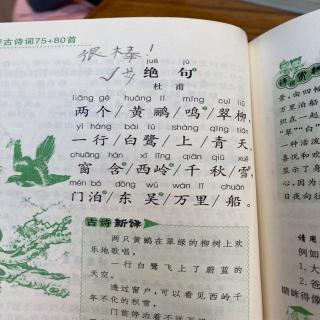 古诗词75+80首
很棒!
jué jù
绝句
杜甫
liǎng gè huáng lí míng cuì liǔ
两个/黄鹂/鸣/翠柳,
yì háng bái lù shàng qīng tiān
一行/白鹭/上/青天。
chuāng hán xī lǐng qiān qiū xuě
窗含/西岭/千秋/雪,
mén bó dōng wú wàn lǐ chuán
门泊/东吴/万里/船。
古诗新解
两只黄鹂在翠绿的柳树上欢
乐地歌唱,
一行白鹭飞上了蔚蓝的
天空。
透过窗户,可以看见西岭千
年不化的积雪,
门前停泊着不远万里
景,由四
万里泊船
在一起,
"翠""白"
一种活泼
喜悦和欢
显示了身
心,因为
日夜向往
借用
例如
1.大
2.爸
晴眯得像